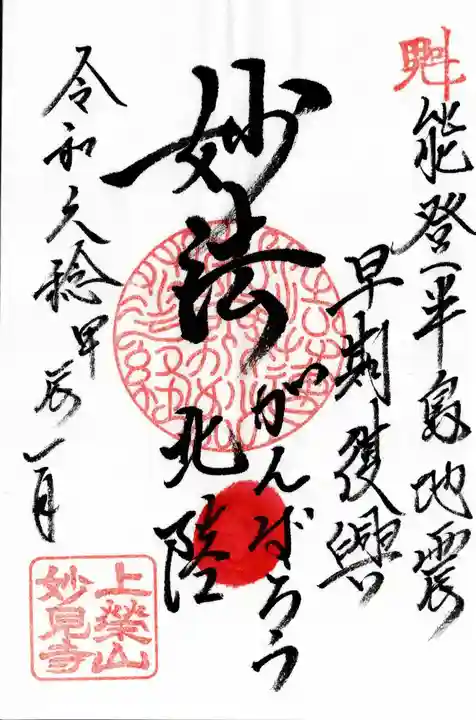 魁
能登半島地震
早期復興
がんばろう
北陸
妙法
令和久稔甲辰一月
上榮山
妙見寺